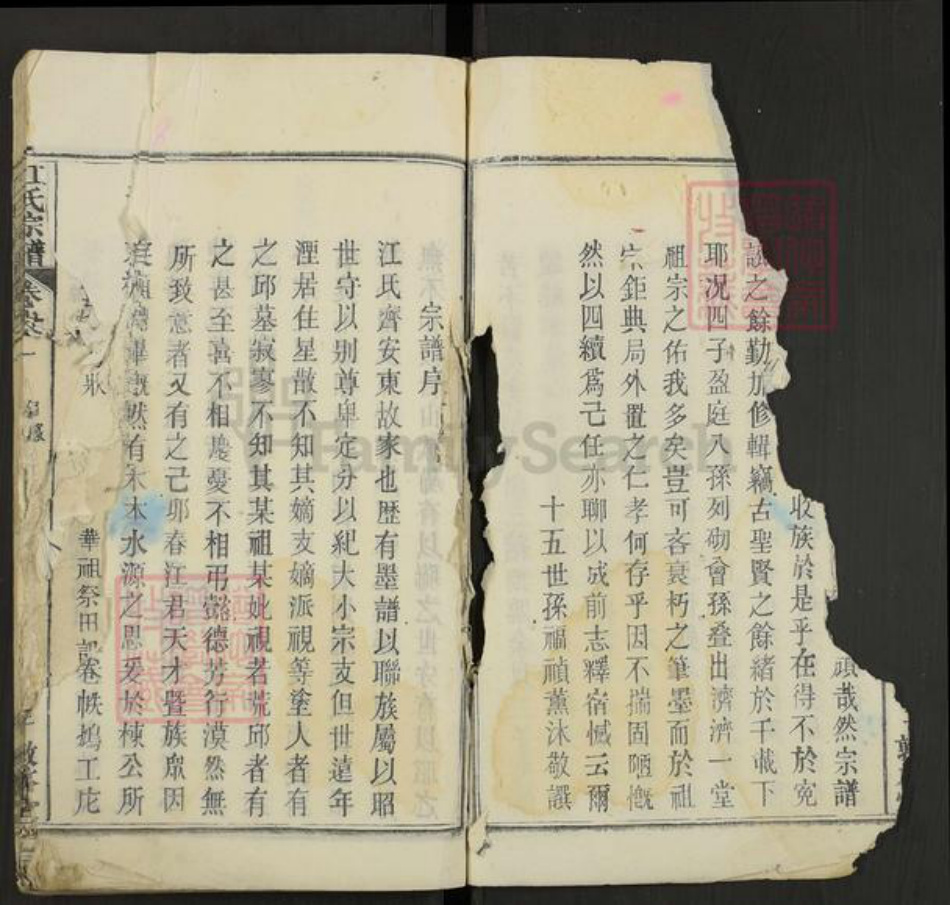 頑哉然宗譜
收族於是乎在得不於寃
之餘勤加修輯竊古聖賢之餘緒於千載下
耶况四子盈庭八孫列砌曾孫叠出濟濟一堂
祖宗之佑我多矣豈可吝衰朽之筆墨而於祖
宗鉅典局外置之仁孝何存乎因不揣固陋慨
然以四續爲己任亦聊以成前志釋宿憾云爾
十五世孫福禎薰沐敬譔
宗譜序
江氏齊安東故家也歴有墨譜以聯族屬以昭
世守以别尊卑定分以紀大小宗支但世遠年
湮居住星散不知其嫡支嫡派視等塗人者有
之邱墓寂寥不知其某祖某妣視者荒邱者有
之甚至喜不相慶憂不相弔懿德芳行漠然無
所致意者又有之己卯春江君天才暨族眾因
畢慨然有木本水源之思爰於棟公所
華祖祭田記卷帙塢工庀
江氏宗譜
卷
FamilySearch